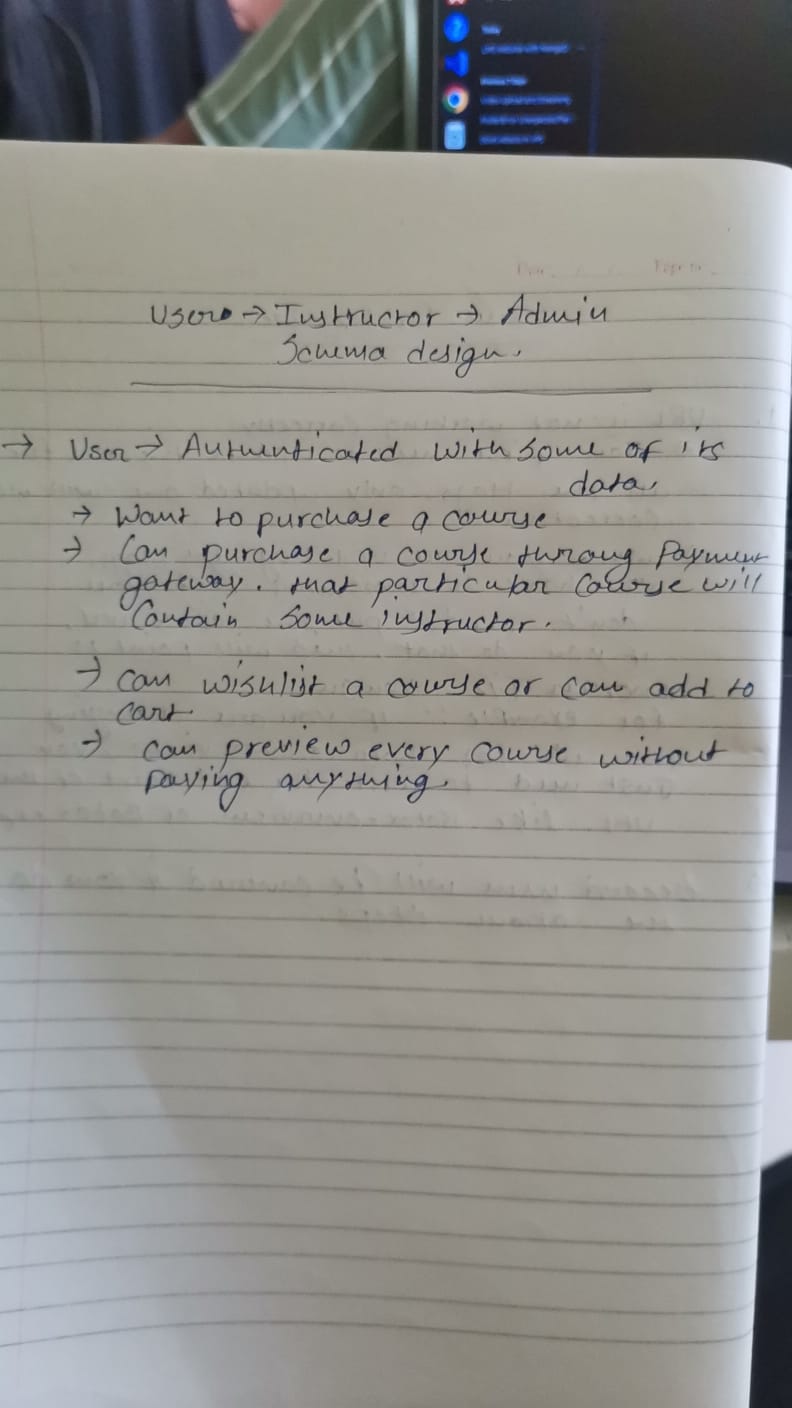 User → Instructor → Admin
Schema design.
→ User → Authenticated with some of its
data.
→ Want to purchase a course
→ Can purchase a course throug Payment
gateway. that particular course will
Contain some instructor.
→ can wishlist a course or can add to
cart.
→ can preview every course without
paying anything.